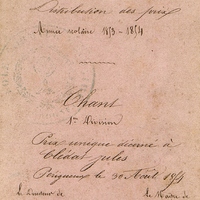 Distribution des prix
Année scolaire 1873 - 1874
Chant
1re Division
Prix unique décerné à
Clédat Jules
Périgueux le 30 Août 187
le Directeur de
le Maître de